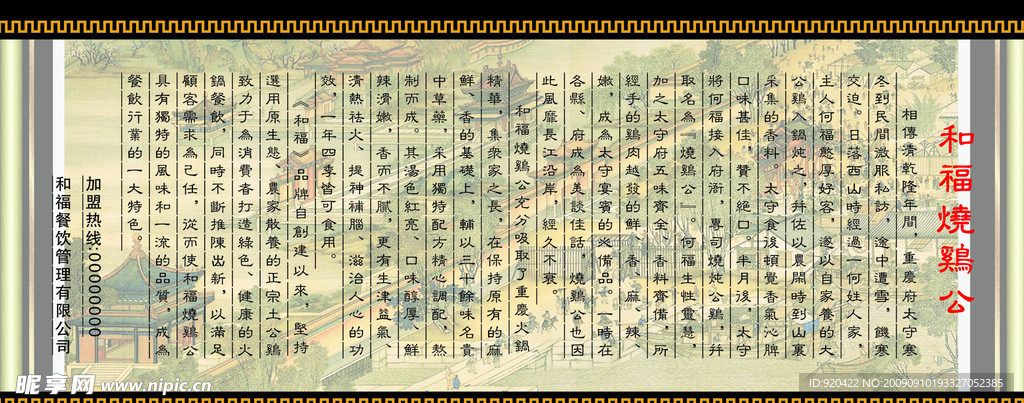 和福燒鷄公
相傳清乾隆年間，重慶府太守寒
冬到民間微服私訪，途中遭雪，饑寒
交迫。日落西山時經過一何姓人家，
主人何福憨厚好客，遂以自家養的大
公鷄入鍋炖之，并佐以農閑時到山裏
采集的香料。太守食後頓覺香氣沁脾
口味甚佳，贊不絕口。半月後，太守
將何福接入府衙，專司燒炖公鷄，并
取名為『燒鷄公』。何福生性靈慧，
加之太守府五味齊全、香料齊備，所
經手的鷄肉越發的鮮、香、麻、辣、
嫩，成為太守宴賓的必備品。一時在
各縣、府成為美談佳話，燒鷄公也因
此風靡長江沿岸，經久不衰。
和福燒鷄公充分吸取了重慶火鍋
精華，集衆家之長，在保持原有的麻
鮮、香的基礎上，輔以三十餘味名貴
中草藥，采用獨特配方精心調配，熬
制而成。其湯色紅亮、口味醇厚、鮮
辣滑嫩，香而不膩，更有生津益氣
清熱祛火、提神補腦、滋治人心的功
效，一年四季皆可食用。
《和福》品牌自創建以來，堅持
選用原生態、農家散養的正宗土公鷄
致力于為消費者打造綠色、健康的火
鍋餐飲，同時不斷推陳出新，以滿足
顧客需求為己任，從而使和福燒鷄公
具有獨特的風味和一流的品質，成為
餐飲行業的一大特色。
加盟热线：00000000000
和福餐饮管理有限公司
昵享网 www.nipic.cn
ID:920422 NO:20090910193327052385